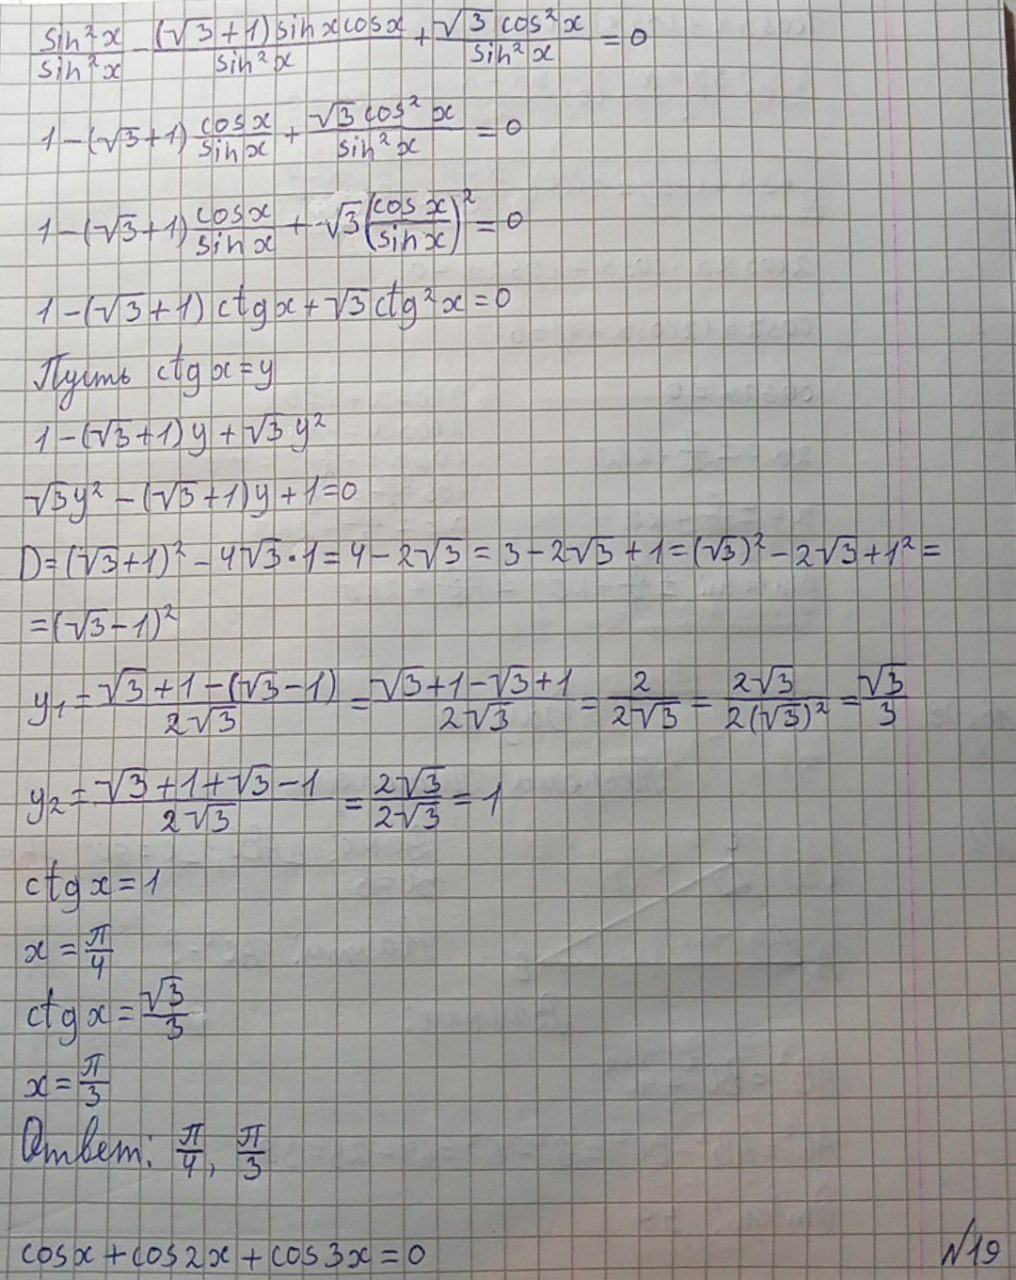 sin²x/sin²x - (√3+1)sinxcosx/sin²x + √3cos²x/sin²x = 0
1-(√3+1)cosx/sinx + √3cos²x/sin²x = 0
1-(√3+1)cosx/sinx + √3(cosx/sinx)² = 0
1-(√3+1)ctgx+√3ctg²x=0
Пусть ctgx=y
1-(√3+1)y+√3y²
√3y²-(√3+1)y+1=0
D=(√3+1)²-4√3·1=4-2√3=3-2√3+1=(√3)²-2√3+1²=
=(√3-1)²
y₁=(√3+1-(√3-1))/(2√3)=(√3+1-√3+1)/(2√3)=2/(2√3)=2√3/(2(√3)²)=√3/3
y₂=(√3+1+√3-1)/(2√3)=2√3/(2√3)=1
ctgx=1
x=π/4
ctgx=√3/3
x=π/3
Ответ: π/4, π/3
cosx+cos2x+cos3x=0 №19